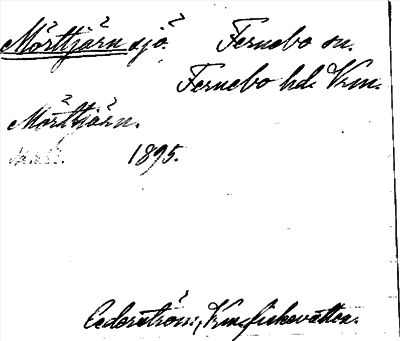 Mörttjärn sjö. Fernebo sn.
Fernebo hd. Vrm.
Mörttjärn.
1895.
Cederström, Vrm. fiskevatten.